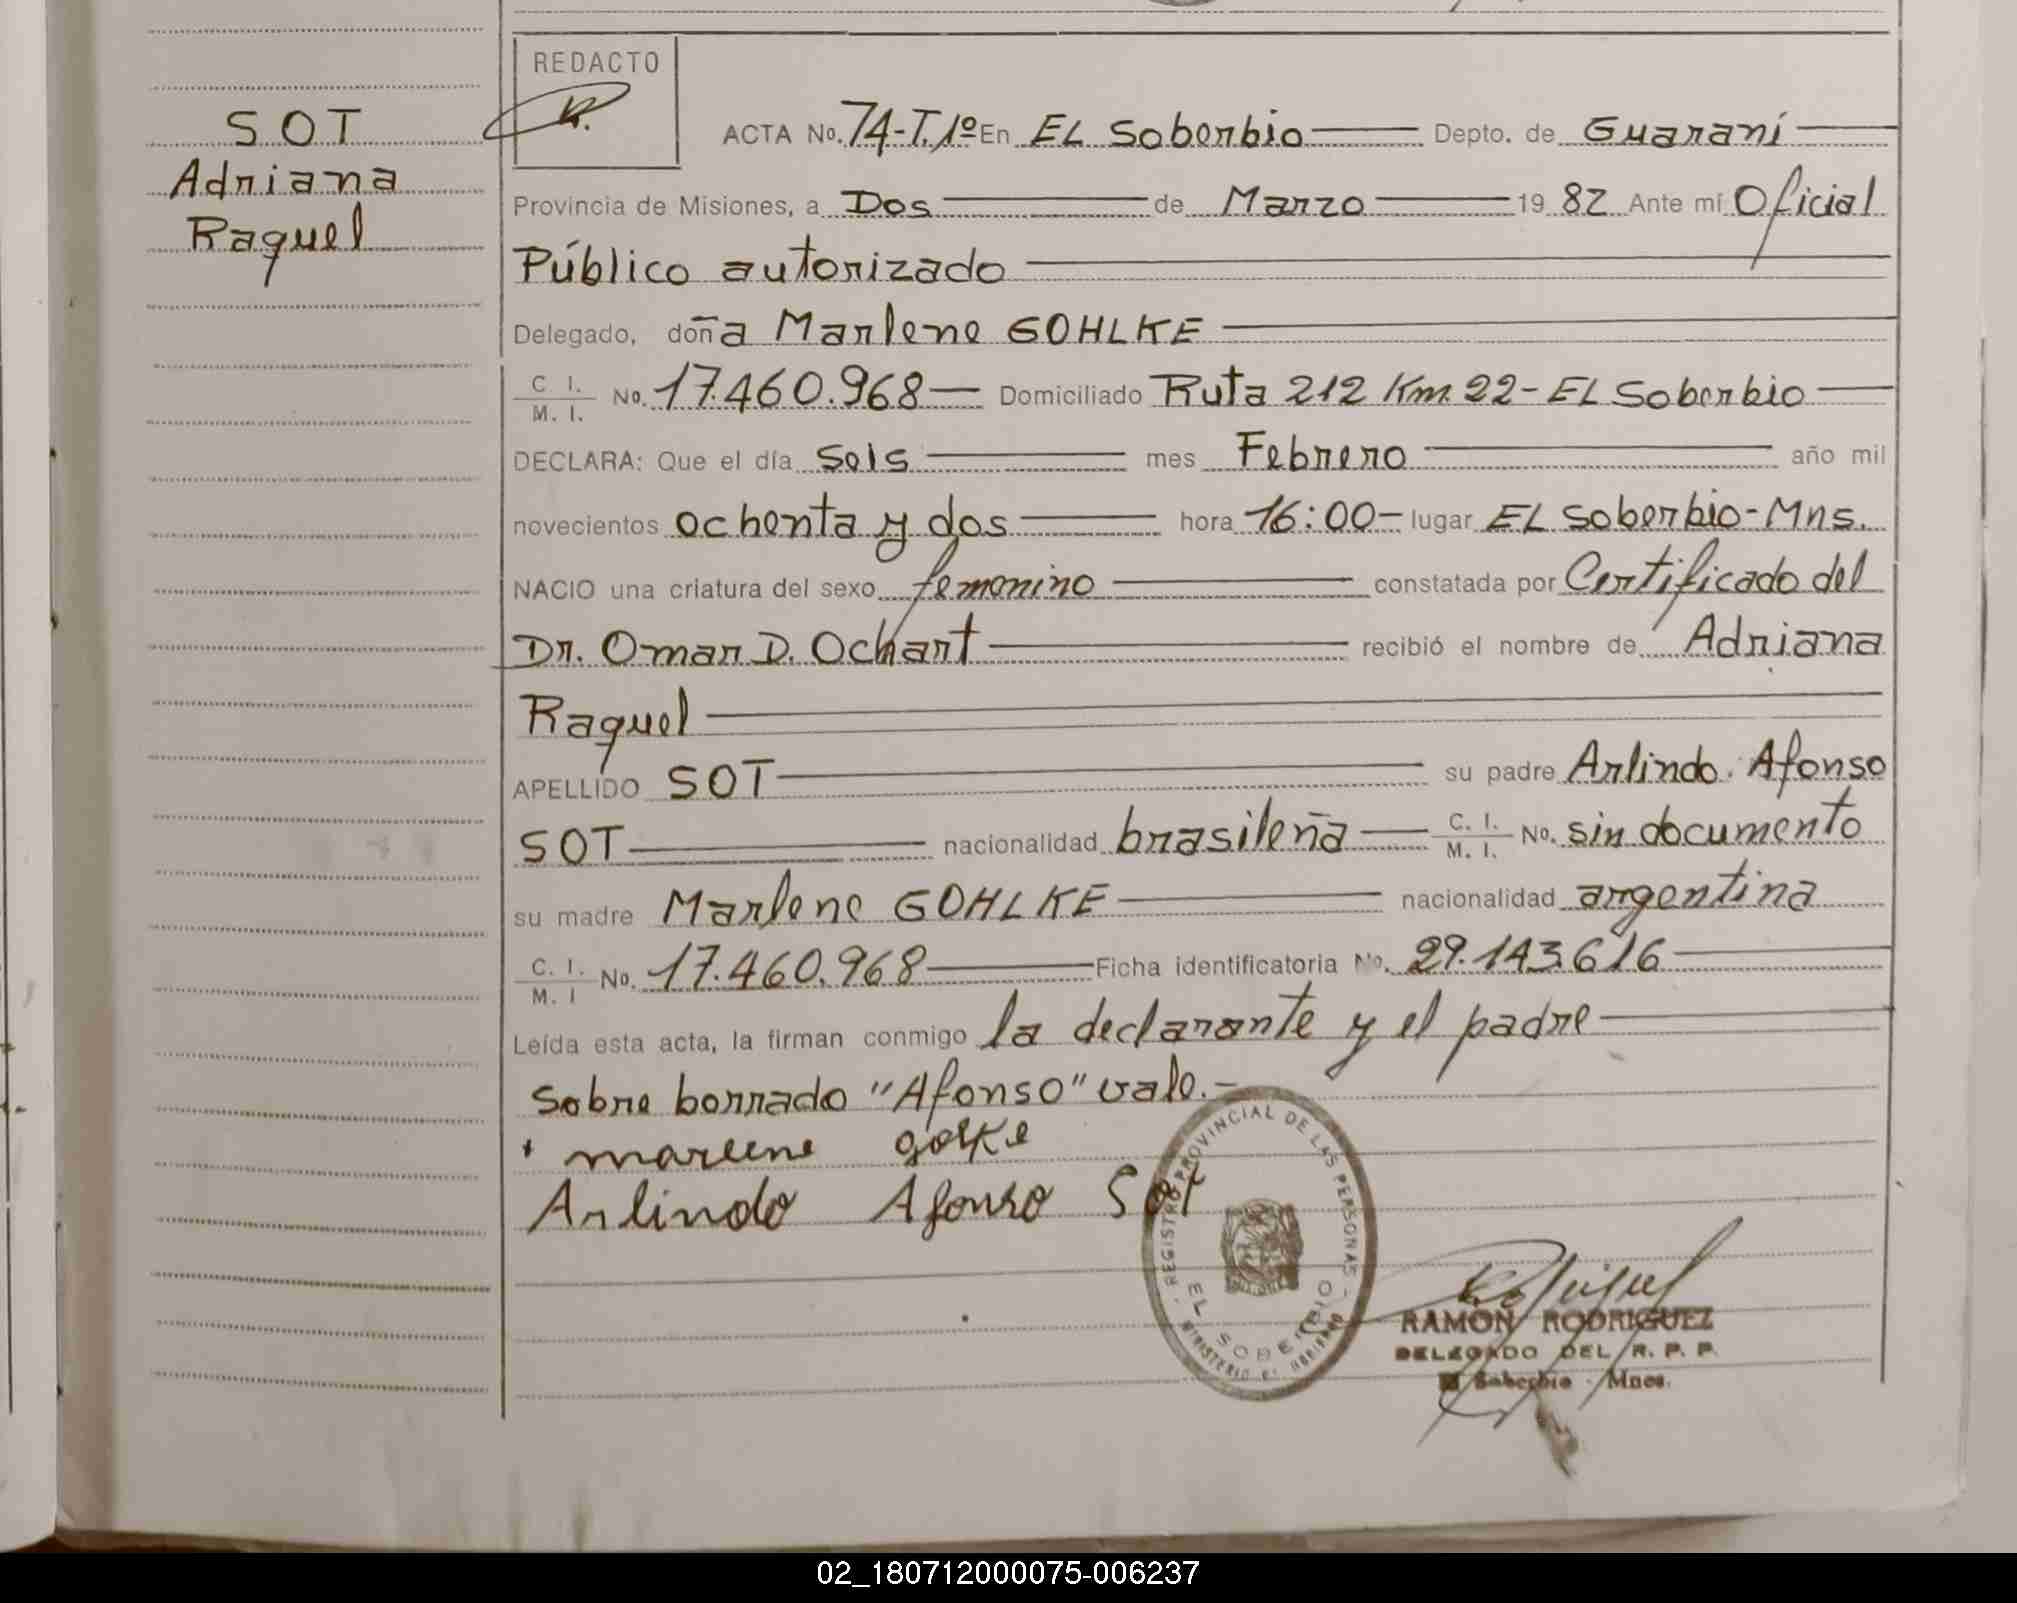 SOT
Adriana
Raquel
REDACTO
ACTA No. 74-T.1º En EL Soberbio Depto. de Guaraní
Provincia de Misiones, a Dos de Marzo 19 82 Ante mí Oficial
Público autorizado
Delegado, doña Marlene GOHLKE
C. I. / M. I. No. 17.460.968 — Domiciliado Ruta 212 Km. 22 - EL Soberbio
DECLARA: Que el día Seis mes Febrero año mil
novecientos ochenta y dos hora 16:00 - lugar EL Soberbio - Mns.
NACIO una criatura del sexo femenino constatada por Certificado del
Dr. Omar D. Ochart recibió el nombre de Adriana
Raquel
APELLIDO SOT su padre Arlindo Afonso
SOT nacionalidad brasileña — C. I. / M. I. No. sin documento
su madre Marlene GOHLKE nacionalidad argentina
C. I. / M. I No. 17.460.968 Ficha identificatoria No. 29.143.616
Leída esta acta, la firman conmigo la declarante y el padre
Sobre borrado "Afonso" vale. -
marlene golke
Arlindo Afonso Sot
REGISTRO PROVINCIAL DE LAS PERSONAS
EL SOBERBIO
MINISTERIO DE GOBIERNO
RAMON RODRIGUEZ
DELEGADO DEL R. P. P.
El Soberbio - Mnes.
02_180712000075-006237